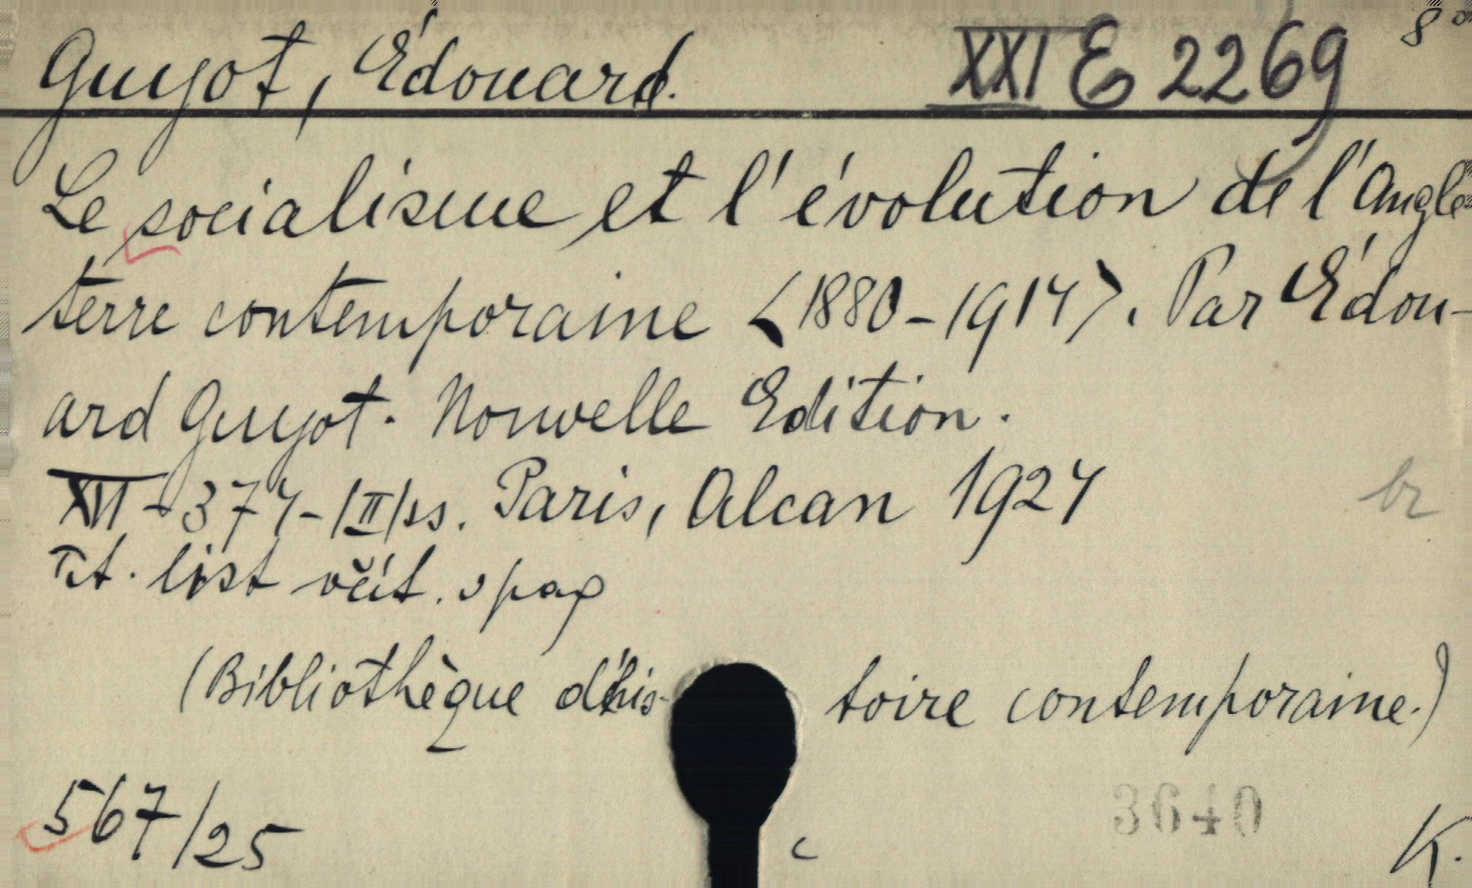 Guyot, Édouard. XXI E 2269 8°
Le socialisme et l'évolution de l'Angle-
terre contemporaine <1880-1914>. Par Édou-
ard Guyot. Nouvelle Edition.
XVI-374-/II/ss. Paris, Alcan 1924 br
Tit. list včít. v pag
(Bibliothèque d'his- toire contemporaine.)
567/25 3640 K.